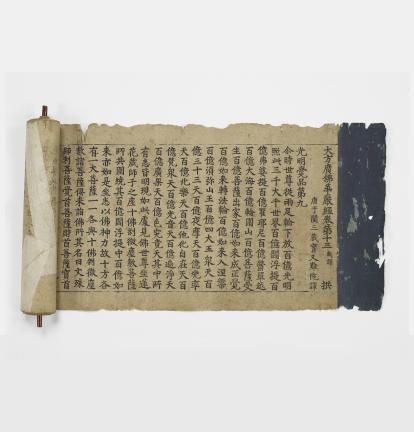 大方廣佛華嚴經卷第十三 新譯 撰
唐于闐三藏實叉難陀譯
光明覺品第九
尒時世尊從兩足輪下放百億光明
照此三千大千世界百億閻浮提百
億弗婆提百億瞿耶尼百億鬱單越
百億大海百億輪圍山百億菩薩受
生百億菩薩出家百億如來成正覺
百億如來轉法輪百億如來入涅槃
百億須彌山王百億四天王衆天百
億三十三天百億夜摩天百億兜率
天百億化樂天百億他化自在天百
億梵衆天百億光音天百億遍淨天
百億廣果天百億色究竟天其中所
有悉皆明現如此處見佛世尊坐蓮
花藏師子之座十佛剎微塵數菩薩
所共圍繞其百億閻浮提中百億如
來亦如是坐悉以佛神力故十方各
有一大菩薩一一各與十佛剎微塵
數諸菩薩俱來詣佛所其名曰文殊
師利菩薩覺首菩薩財首菩薩寶首